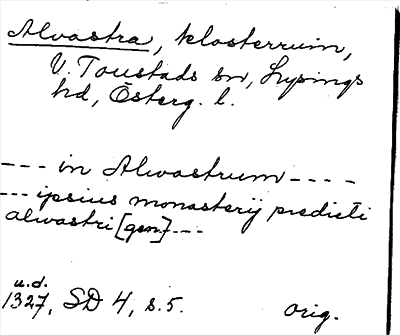 Alvastra, klosterruin,
V. Toustads sn, Lysings
hd, Österg. l.
--- in Alwastrum ----
--- ipsius monasterij predicti
alwastri [gen.] ---
u.d.
1327, SD 4, s. 5. orig.